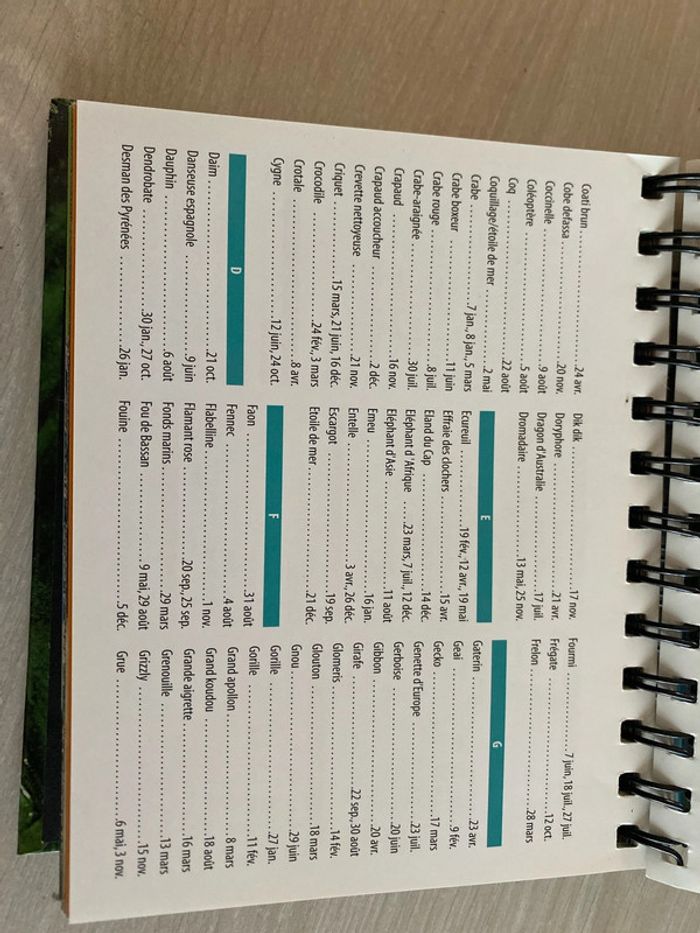 Coati brun ........ 24 avr.
Cobe defassa ........ 20 nov.
Coccinelle ........ 9 août
Coléoptère ........ 5 août
Coq ........ 22 août
Coquillage/étoile de mer ........ 2 mai
Crabe ........ 7 jan., 8 jan., 5 mars
Crabe boxeur ........ 11 juin
Crabe rouge ........ 8 juil.
Crabe-araignée ........ 30 juil.
Crapaud ........ 16 nov.
Crapaud accoucheur ........ 2 déc.
Crevette nettoyeuse ........ 21 nov.
Criquet ........ 15 mars, 21 juin, 16 déc.
Crocodile ........ 24 fév., 3 mars
Crotale ........ 8 avr.
Cygne ........ 12 juin, 24 oct.
D
Daim ........ 21 oct.
Danseuse espagnole ........ 9 juin
Dauphin ........ 6 août
Dendrobate ........ 30 jan., 27 oct.
Desman des Pyrénées ........ 26 jan.
Dik dik ........ 17 nov.
Doryphore ........ 21 avr.
Dragon d'Australie ........ 17 juil.
Dromadaire ........ 13 mai, 25 nov.
E
Ecureuil ........ 19 fév., 12 avr., 19 mai
Effraie des clochers ........ 15 avr.
Eland du Cap ........ 14 déc.
Eléphant d'Afrique ........ 23 mars, 7 juil., 12 déc.
Eléphant d'Asie ........ 11 août
Emeu ........ 16 jan.
Entelle ........ 3 avr., 26 déc.
Escargot ........ 19 sep.
Etoile de mer ........ 21 déc.
F
Faon ........ 31 août
Fennec ........ 4 août
Flabelline ........ 1 nov.
Flamant rose ........ 20 sep., 25 sep.
Fonds marins ........ 29 mars
Fou de Bassan ........ 9 mai, 29 août
Fouine ........ 5 déc.
Fourmi ........ 7 juin, 18 juil., 27 juil.
Frégate ........ 12 oct.
Frelon ........ 28 mars
G
Gaterin ........ 23 avr.
Geai ........ 9 fév.
Gecko ........ 17 mars
Genette d'Europe ........ 23 juil.
Gerboise ........ 20 juin
Gibbon ........ 20 avr.
Girafe ........ 22 sep., 30 août
Glomeris ........ 14 fév.
Glouton ........ 18 mars
Gnou ........ 29 juin
Gorille ........ 27 jan.
Gorille ........ 11 fév.
Grand apollon ........ 8 mars
Grand koudou ........ 18 août
Grande aigrette ........ 16 mars
Grenouille ........ 13 mars
Grizzly ........ 15 nov.
Grue ........ 6 mai, 3 nov.